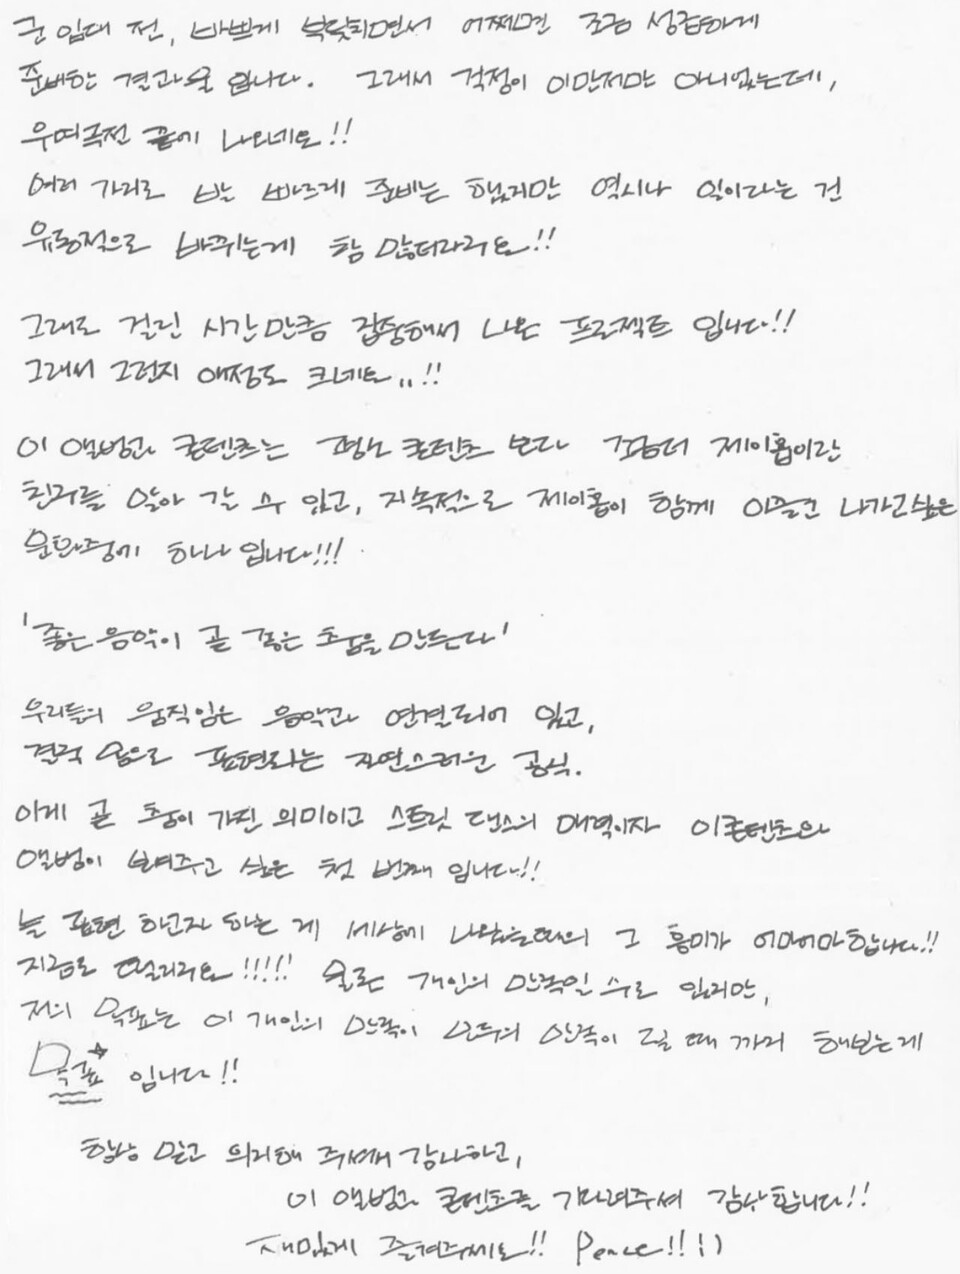 군 입대 전, 바쁘게 부딪히면서 어쩌면 조금 성급하게
준비한 결과물 입니다. 그래서 걱정이 이만저만 아니었는데,
우여곡절 끝에 나오네요!!
여러 가지로 발 빠르게 준비는 했지만 역시나 일이라는 건
유동적으로 바뀌는게 참 많더라구요!!
그래도 걸린 시간만큼 집중해서 나온 프로젝트 입니다!!
그래서 그런지 애정도 크네요..!!
이 앨범과 콘텐츠는 평소 콘텐츠 보다 조금더 제이홉이란
친구를 알아 갈 수 있고, 지속적으로 제이홉이 함께 이끌고 나가고싶은
문화중에 하나 입니다!!!
'좋은 음악이 곧 좋은 춤을 만든다'
우리들의 움직임은 음악과 연결되어 있고,
결국 몸으로 표현하는 자연스러운 공식.
이게 곧 춤이 가진 의미이고 스트릿 댄스의 매력이자 이콘텐츠와
앨범이 보여주고 싶은 첫 번째 입니다!!
늘 표현 하고자 하는 게 세상에 나왔을때의 그 흥미가 어마어마합니다!!
지금도 떨리구요!!!!! 물론 개인의 만족일 수도 있지만,
저의 목표는 이 개인의 만족이 모두의 만족이 될 때 까지 해보는게
목표 입니다!!
항상 믿고 의지해 주셔서 감사하고,
이 앨범과 콘텐츠를 기다려주셔 감사합니다!!
재밌게 즐겨주세요!! Peace!! :)